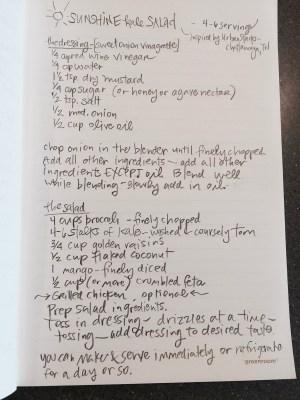 SUNSHINE Kale SALAD
- 4-6 servings
inspired by Urban Stack-
Chattanooga, Tn
the dressing - (sweet onion vinaigrette)
1/4 cup red wine vinegar
1/4 cup water
1 1/2 tsp. dry mustard
1/4 cup sugar (or honey or agave nectar)
1/2 tsp. salt
1/2 med. onion
1/2 cup olive oil
chop onion in the blender until finely chopped
Add all other ingredients - add all other
ingredients EXCEPT oil Blend well
While blending - slowly add in oil.
the salad
4 cups broccoli - finely chopped
4-6 stalks of kale - washed & coursely torn
3/4 cup golden raisins
1/2 cup flaked coconut
1 mango - finely diced
1/2 cup (or more) crumbled feta
→ Grilled chicken, optional ←
Prep salad ingredients.
Toss in dressing - drizzles at a time -
tossing - add dressing to desired taste.
you can make & serve immediately or refrigerate
for a day or so.
greenroom